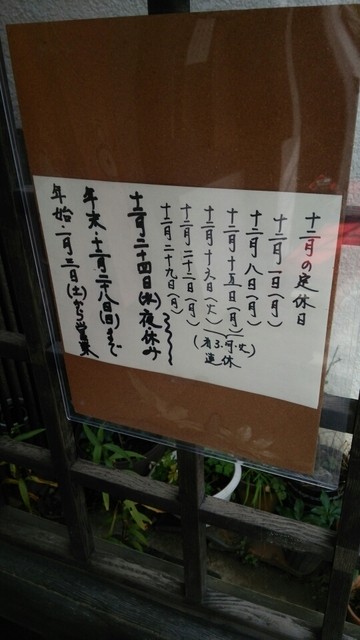 十二月の定休日
十二月一日(月)
十二月八日(月)
十二月十五日(月)
十二月十六日(火)
(第3.月.火)
連休
十二月二十二日(月)
十二月二十九日(月)
十二月二十四日(水)夜休み
年末.十二月二十八日(日)まで
年始.一月三日(土)から営業